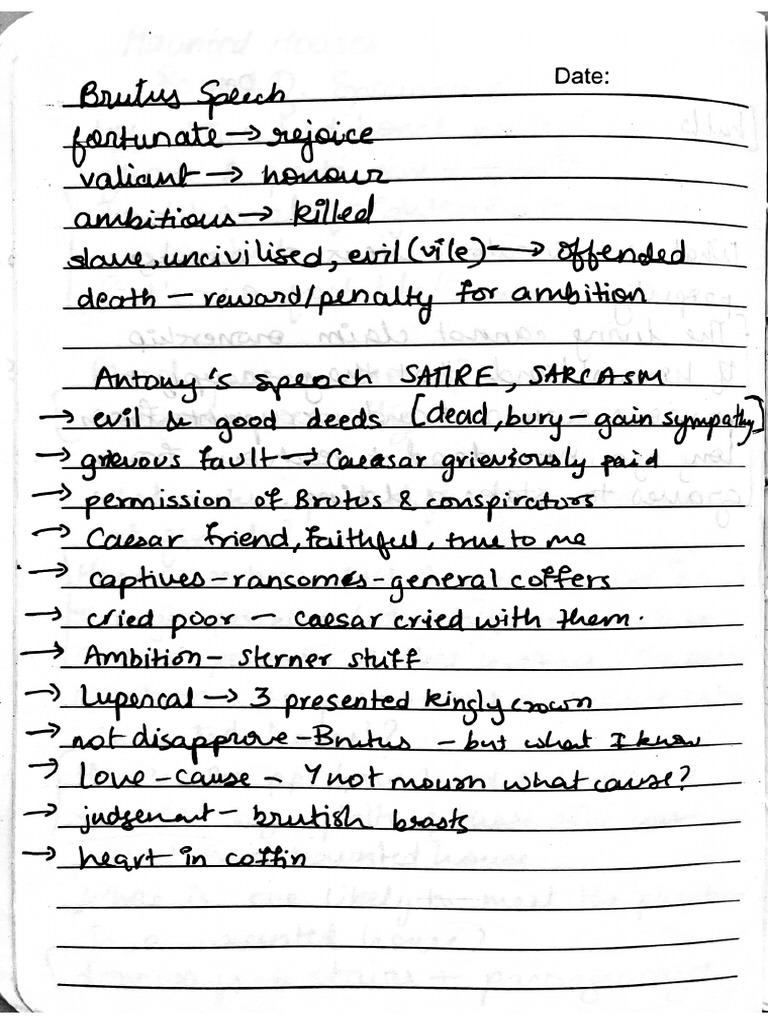 Date:
Brutus Speech
fortunate → rejoice
valiant → honour
ambitious → killed
slave, uncivilised, evil (vile) → offended
death – reward/penalty for ambition
Antony's speech SATIRE, SARCASM
→ evil & good deeds [dead, bury – gain sympathy]
→ grievous fault → Caeasar grieviously paid
→ permission of Brutus & conspirators
→ Caesar friend, faithful, true to me
→ captives – ransomes – general coffers
→ cried poor – caesar cried with them.
→ Ambition – sterner stuff
→ Lupercal → 3 presented kingly crown
→ not disapprove – Brutus – but what I know
→ Love – cause – Y not mourn what cause?
→ judgement – brutish beasts
→ heart in coffin